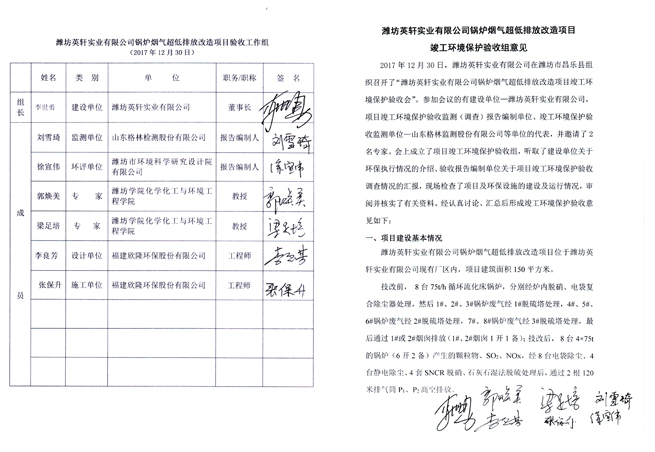 潍坊英轩实业有限公司锅炉烟气超低排放改造项目验收工作组
（2017年12月30日）
姓名 类别 单位 职务/职称 签名
组长 李世勇 建设单位 潍坊英轩实业有限公司 董事长
成员
刘雪琦 监测单位 山东格林检测股份有限公司 报告编制人 刘雪琦
徐宣伟 环评单位 潍坊市环境科学研究设计院有限公司 报告编制人 徐宣伟
郭焕美 专家 潍坊学院化学化工与环境工程学院 教授 郭焕美
梁足培 专家 潍坊学院化学化工与环境工程学院 教授 梁足培
李良芳 设计单位 福建欣隆环保股份有限公司 工程师
张保升 施工单位 福建欣隆环保股份有限公司 工程师 张保升
潍坊英轩实业有限公司锅炉烟气超低排放改造项目
竣工环境保护验收组意见
2017年12月30日，潍坊英轩实业有限公司在潍坊市昌乐县组
织召开了“潍坊英轩实业有限公司锅炉烟气超低排放改造项目竣工环
境保护验收会”。参加会议的有建设单位—潍坊英轩实业有限公司，
项目竣工环境保护验收监测（调查）报告编制单位、竣工环境保护验
收监测单位—山东格林监测股份有限公司等单位的代表，并邀请了2
名专家。会上成立了项目竣工环境保护验收组，听取了建设单位关于
环保执行情况的介绍、验收报告编制单位关于项目竣工环境保护验收
调查情况的汇报，现场检查了项目及环保设施的建设及运行情况，审
阅并核实了有关资料。经认真讨论、汇总后形成竣工环境保护验收意
见如下：
一、项目建设基本情况
潍坊英轩实业有限公司锅炉烟气超低排放改造项目位于潍坊英
轩实业有限公司现有厂区内，项目建筑面积150平方米。
技改前，8台75t/h循环流化床锅炉，分别经炉内脱硝、电袋复
合除尘器处理，然后1#、2#、3#锅炉废气经1#脱硫塔处理，4#、5#、
6#锅炉废气经2#脱硫塔处理，7#、8#锅炉废气经3#脱硫塔处理，最
后通过1#或2#烟囱排放（1#、2#烟囱1开1备）；技改后，8台4×75t
的锅炉（6开2备）产生的颗粒物、SO₂、NOx，经8台电袋除尘、4
台静电除尘、4套SNCR脱硝、石灰石湿法脱硫处理后，通过2根120
米排气筒P₁、P₂高空排放。
郭焕美 梁足培 刘雪琦
张保升 徐宣伟